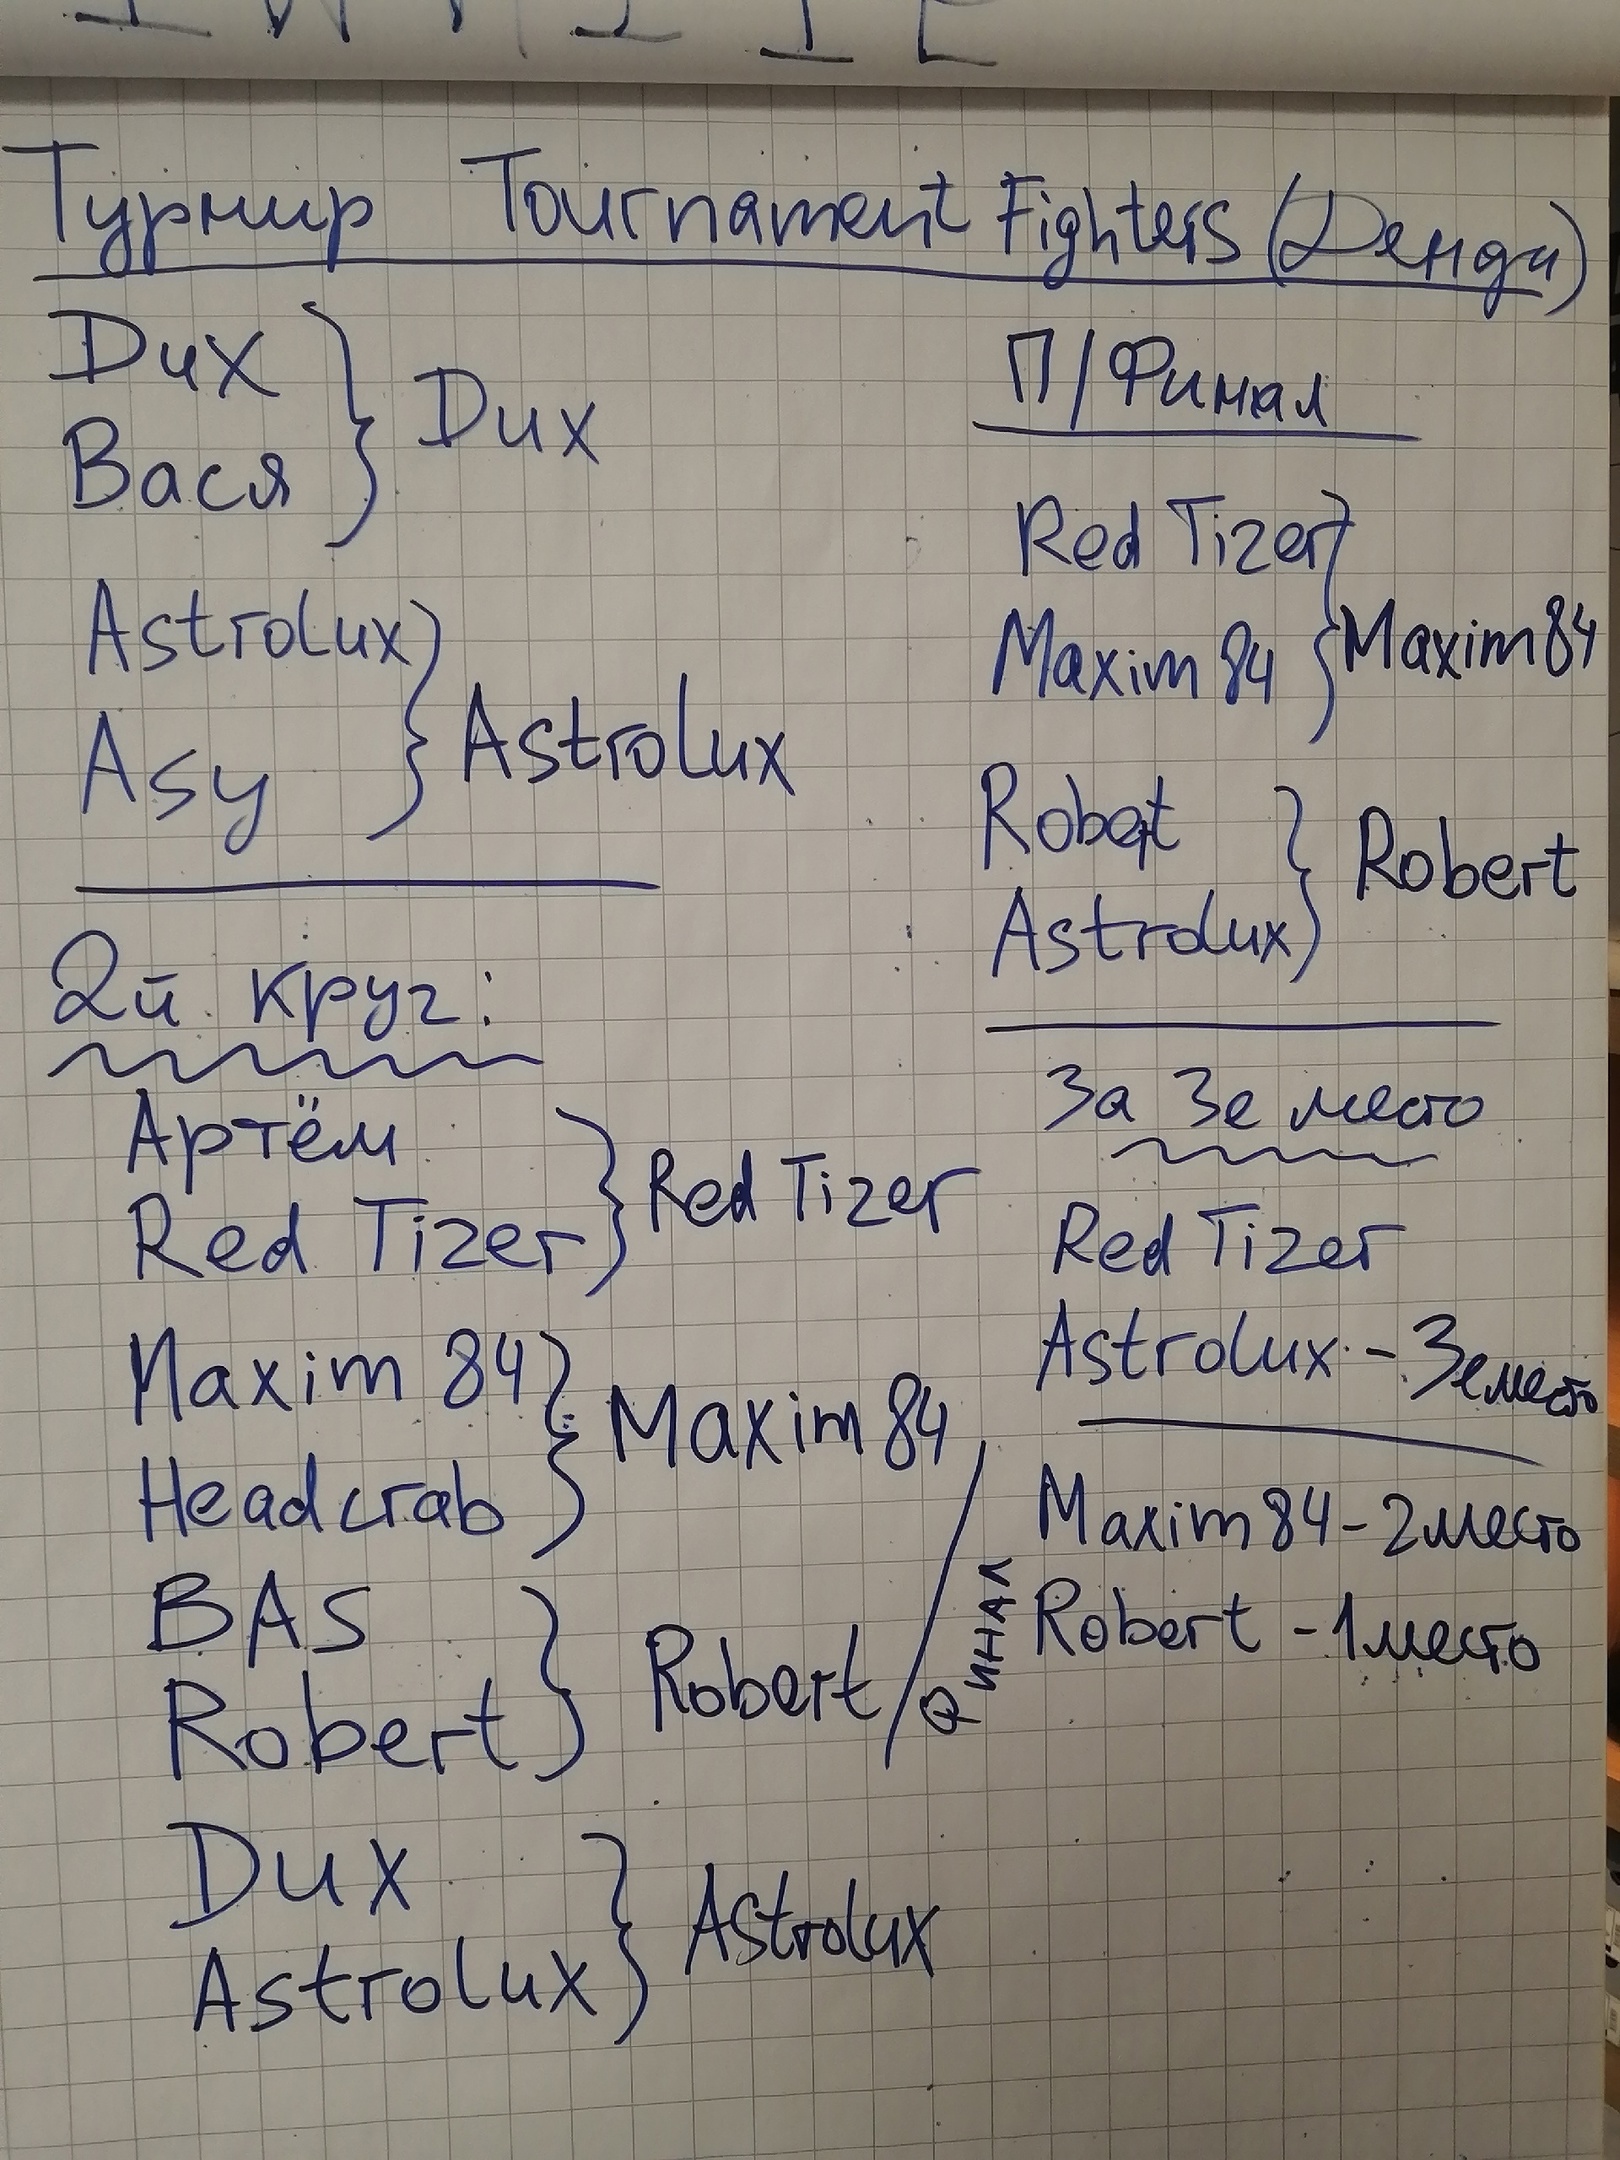 Турнир Tournament Fighters (Денди)
Dux
Вася
Dux
Astrolux
Asy
Astrolux
2й круг:
Артём
Red Tizer
Red Tizer
Maxim 84
Headcrab
Maxim 84
BAS
Robert
Robert
Dux
Astrolux
Astrolux
П/Финал
Red Tizer
Maxim 84
Maxim 84
Robert
Astrolux
Robert
За 3е место
Red Tizer
Astrolux - 3е место
Финал
Maxim 84 - 2 место
Robert - 1 место